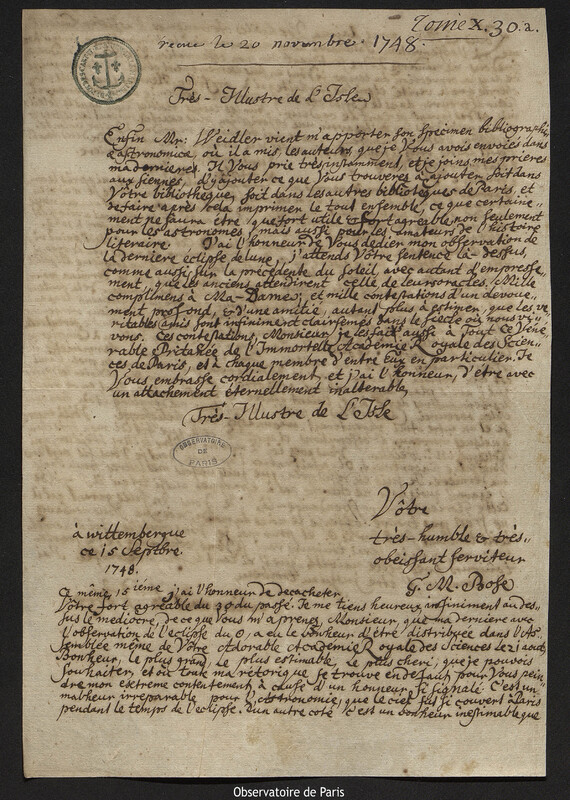 Tome X. 30. a.
recue le 20 novembre. 1748.
Très-Illustre de L'Isle
Enfin Mr: Weidler vient m'apporter son Specimen bibliographiæ
astronomicæ, où il a mis, les auteurs, que je Vous avois envoiés dans
ma derniere. Il Vous prie très instamment, et je joins mes prieres
aux siennes, d'ajouter ce que Vous trouverés à ajouter, soit dans
Vôtre bibliotheque, soit dans les autres bibliotéques de Paris, et
de faire après cela imprimer le tout ensemble, ce que certaine=
ment ne saura être, que fort utile & fort agréable, non seulement
pour les astronomes, mais aussi pour les amateurs de l'histoire
literaire. J'ai l'honneur de Vous dedier mon observation de
la derniere eclipse de lune, j'attends Vôtre Sentence là-dessus,
comme aussi sur la précedente du Soleil, avec autant d'empresse,,
ment, que les anciens attendirent celle de leurs oracles. Mille
complimens à Ma-Dame, et mille contestations d'un devoue,,
ment profond, & d'une amitie, autant plus à estimer, que les ve,,
ritables amis sont infiniment clairsemés dans le siecle où nous vi,,
vons. Ces contestations, Monsieur, je les fait aussi à Tout ce Véne,,
rable Pritanée de l'Immortelle Académie Royale des Scien,,
ces de Paris, et à chaque membre d'entre Eux en particulier. Je
Vous embrasse cordialement, et j'ai l'honneur, d'etre avec
un attachement éternellement inalterable,
Très-Illustre de L'Isle
OBSERVATOIRE
DE
PARIS
Vôtre
très-humble & très,,
obeissant serviteur
G. M. Bose
à Wittembergue
ce 15 Septbre.
1748.
Ce même 15 ieme, j'ai l'honneur de decacheter
Vôtre fort agréable du 30 du passé. Je me tiens heureux infiniment au des,,
sus le mediocre, de ce que Vous m'aprenés, Monsieur, que ma derniere avec
l'observation de l'eclipse du ☉, a eu le bonheur d'été distribuée dans l'As,,
semblée même de Vôtre Adorable Academie Royale des Sciences le 21 aout,
Bonheur, le plus grand, le plus estimable, le plus cheri, que je pouvois
souhaiter, et où toute ma rétorique se trouve en defaut, pour Vous pein,,
dre mon extreme contentement, à cause d'un honneur, si signalé. C'est un
malheur irréparable pour l'astronomie, que le ciel fut si couvert à Paris
pendant le temps de l'eclipse. D'un autre coté c'est un bonheur inestimable que
Observatoire de Paris